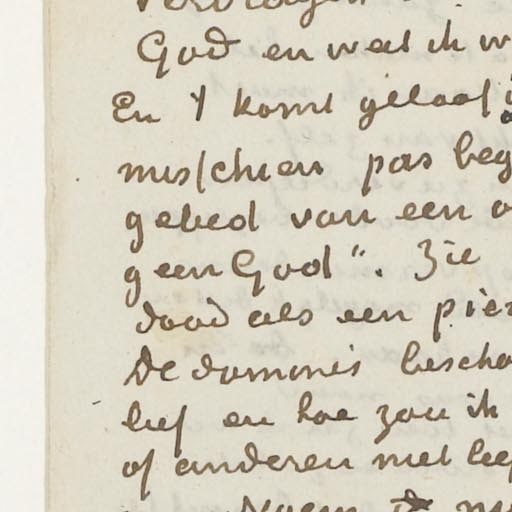 God en wat ik w
En 't komt geloof i
misschien pas beg
gebed van een o
geen God" Zie
dood als een pier
De dominés bescho
lief en hoe zou ik
of anderen niet leef